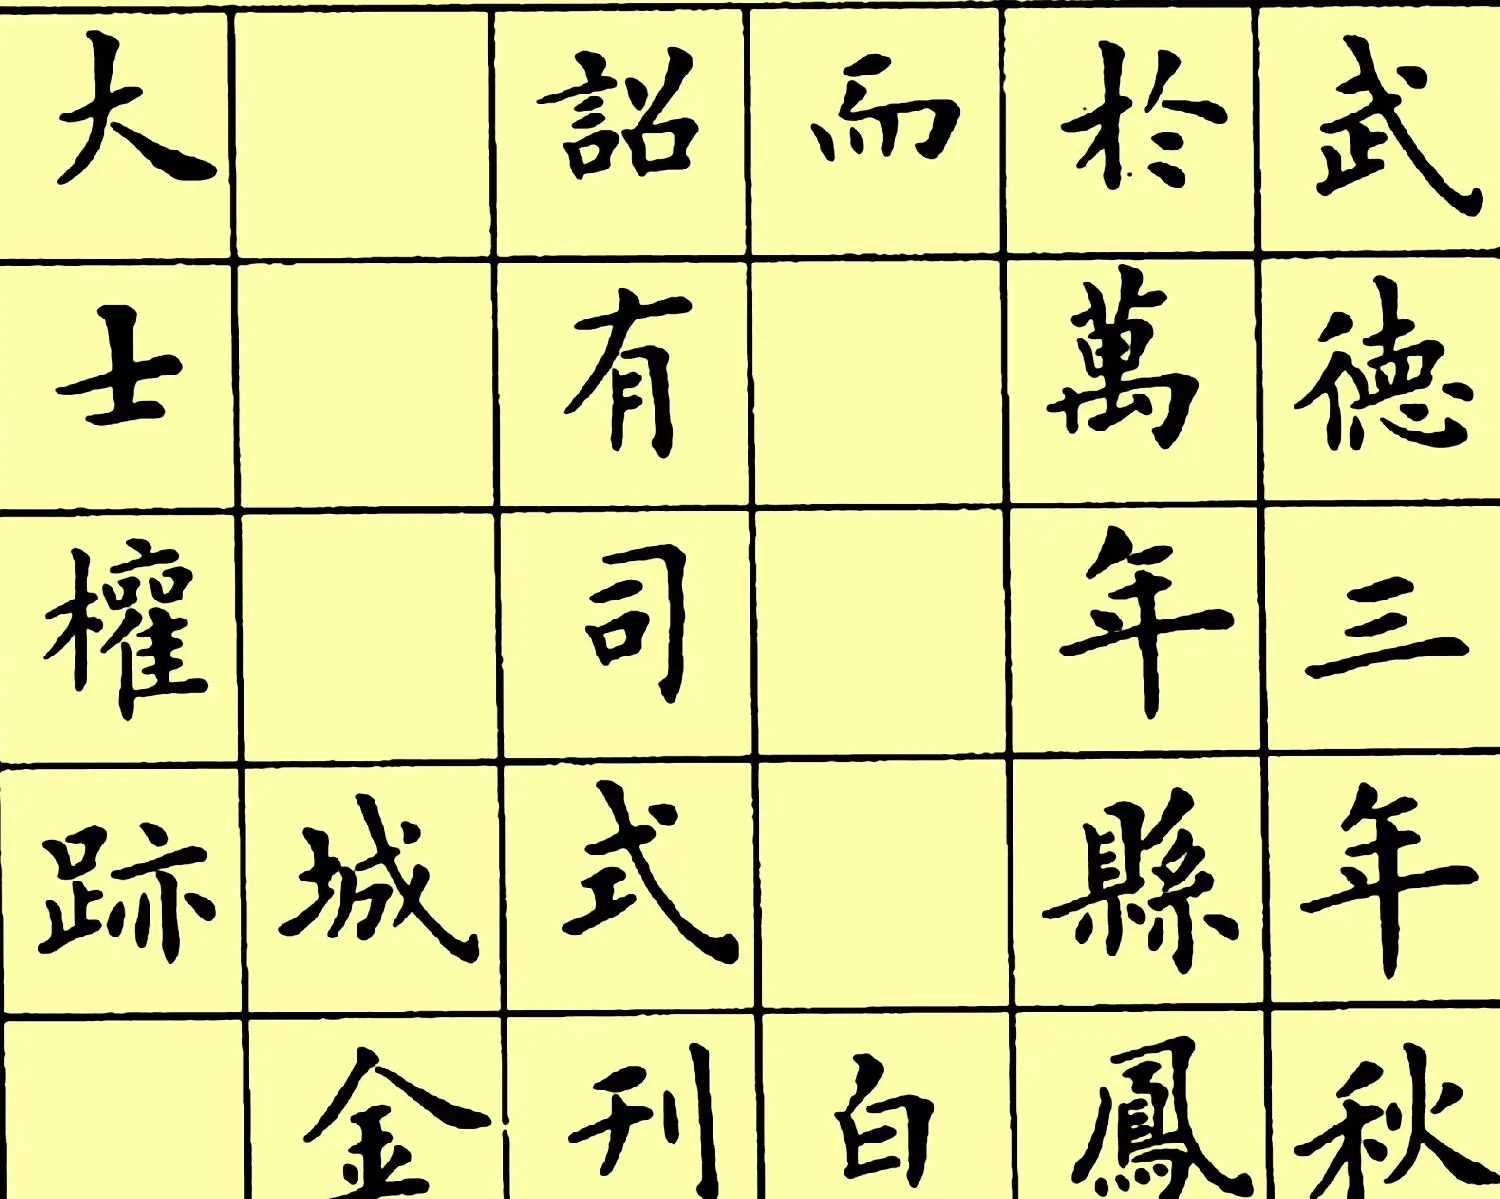 武德三年秋
於萬年縣鳳
而白
詔有司式刊
城金
大士權跡